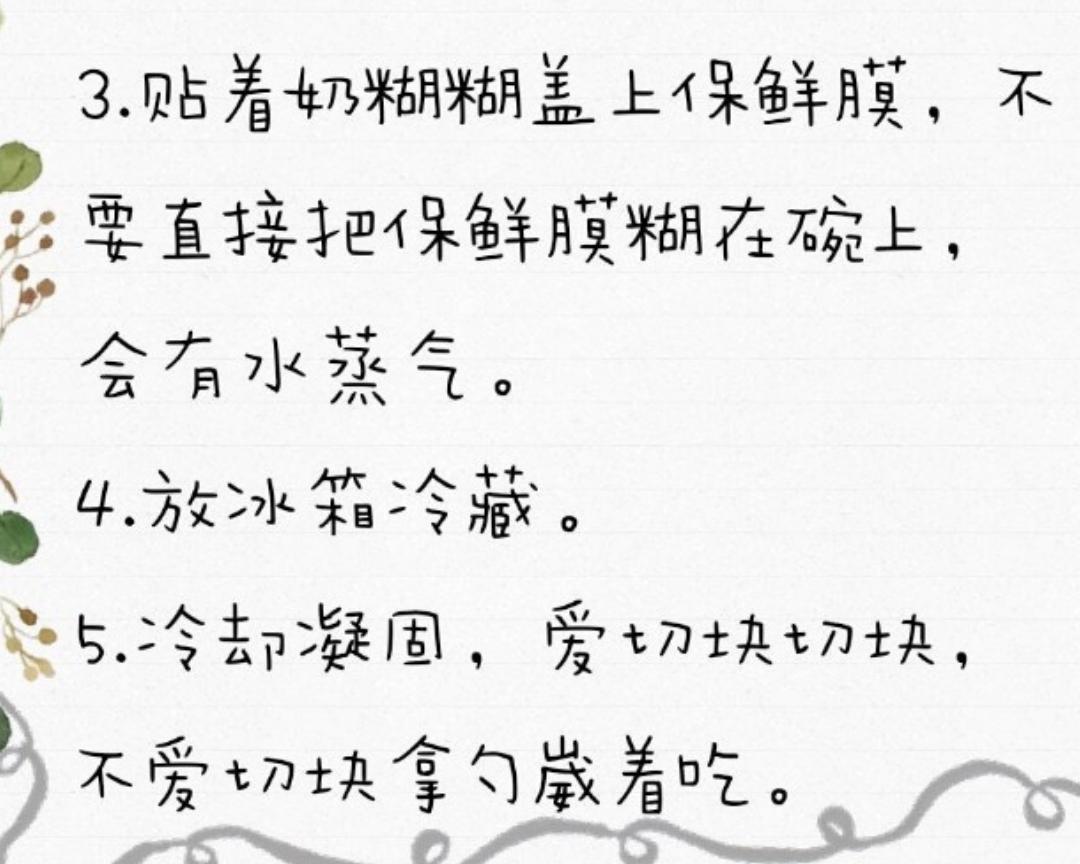 3.贴着奶糊糊盖上保鲜膜，不
要直接把保鲜膜糊在碗上，
会有水蒸气。
4.放冰箱冷藏。
5.冷却凝固，爱切块切块，
不爱切块拿勺崴着吃。